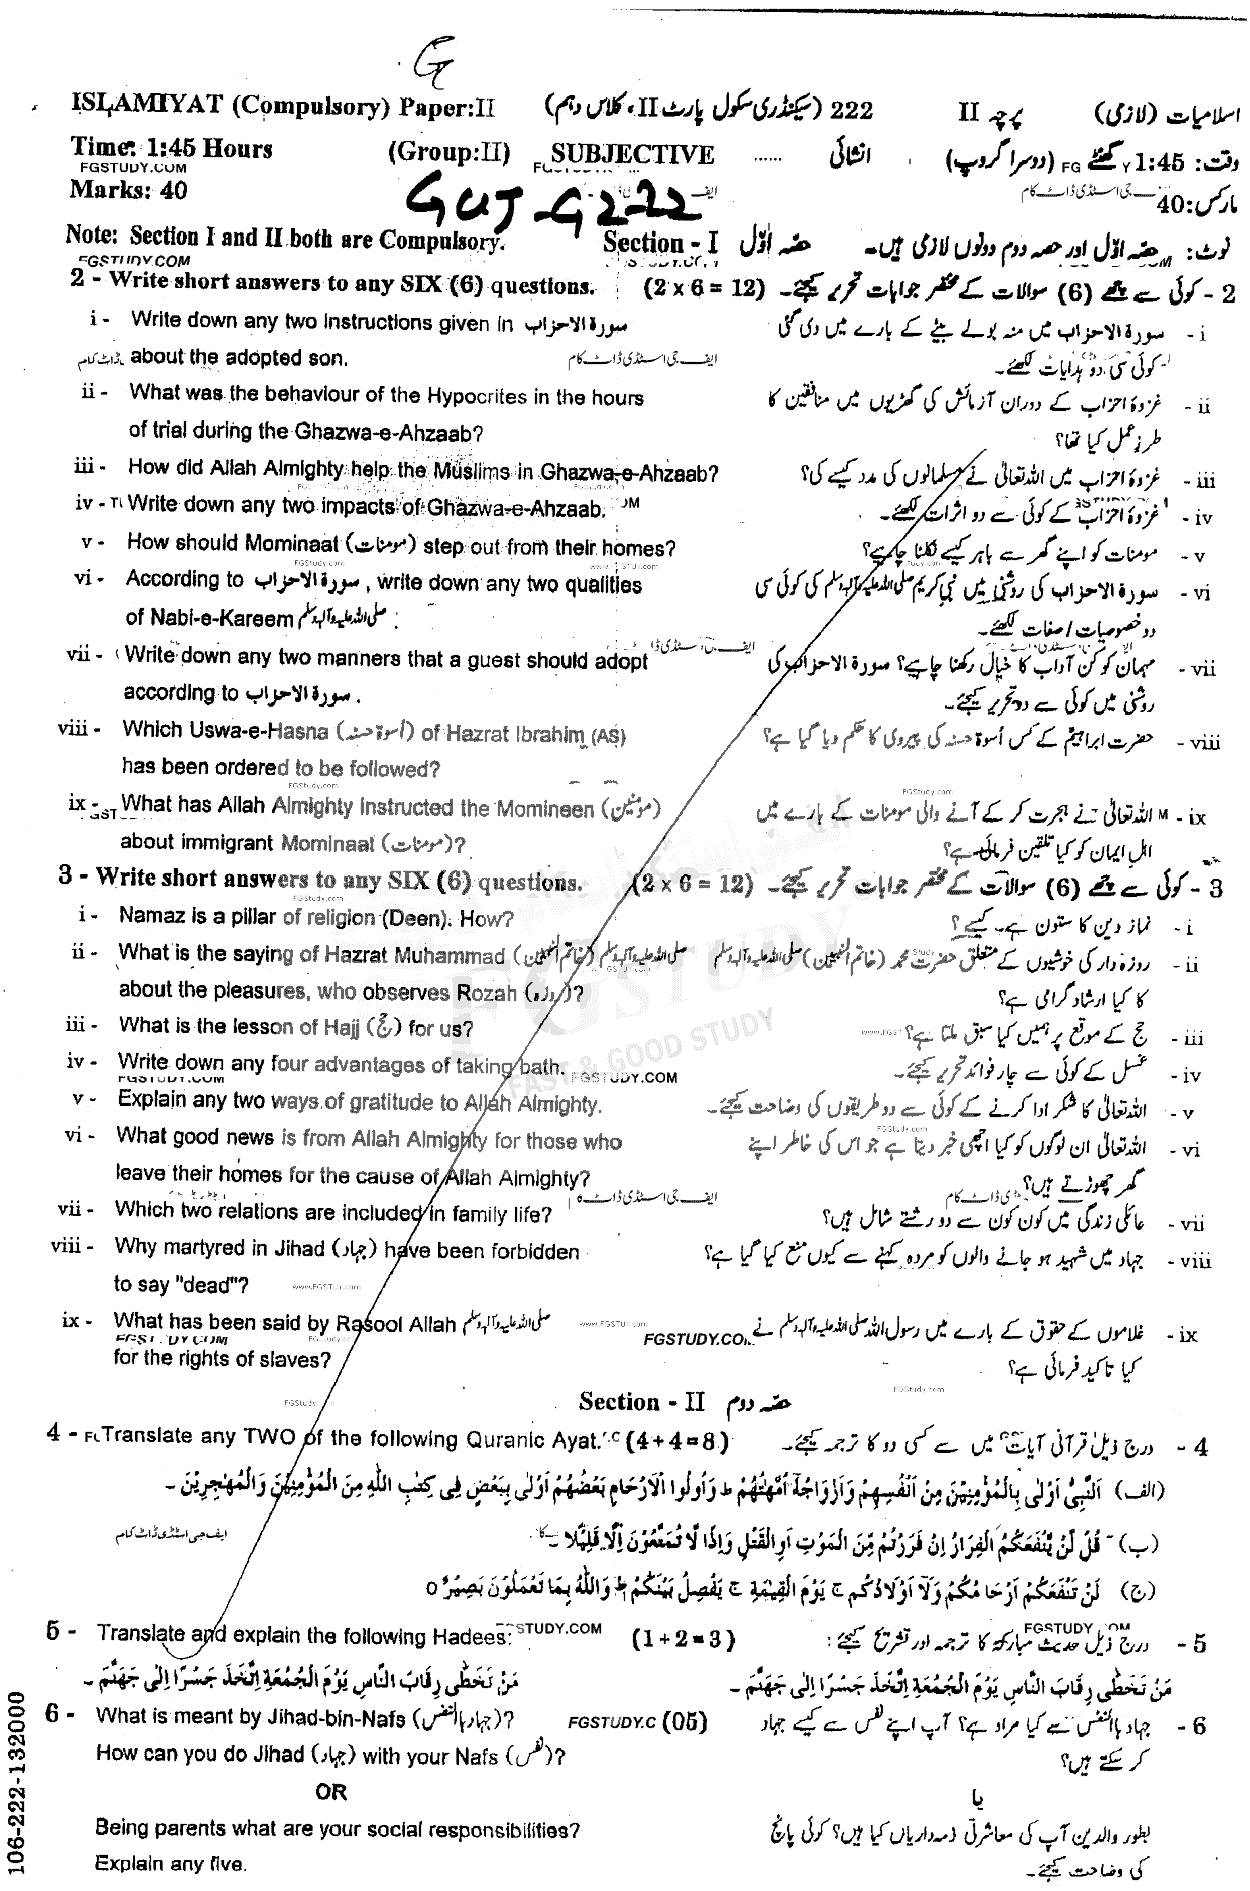 G
ISLAMIYAT (Compulsory) Paper:II 222 (سیکنڈری سکول پارٹ II، کلاس دہم) پرچہ II اسلامیات (لازمی)
Time: 1:45 Hours (Group:II) SUBJECTIVE ...... انشائی وقت: 1:45 گھنٹے (دوسرا گروپ)
FGSTUDY.COM
Marks: 40 مارکس: 40
GUJ-G2-22
Note: Section I and II both are Compulsory. Section - I حصہ اوّل نوٹ: حصہ اوّل اور حصہ دوم دونوں لازمی ہیں۔
FGSTUDY.COM
2 - Write short answers to any SIX (6) questions. (2 x 6 = 12) 2 - کوئی سے چھے (6) سوالات کے مختصر جوابات تحریر کیجئے۔
i - Write down any two instructions given in سورۃ الاحزاب i - سورۃ الاحزاب میں منہ بولے بیٹے کے بارے میں دی گئی
about the adopted son. ایف جی اسٹڈی ڈاٹ کام کوئی سی دو ہدایات لکھئے۔
ii - What was the behaviour of the Hypocrites in the hours ii - غزوۂ احزاب کے دوران آزمائش کی گھڑیوں میں منافقین کا
of trial during the Ghazwa-e-Ahzaab? طرزِ عمل کیا تھا؟
iii - How did Allah Almighty help the Muslims in Ghazwa-e-Ahzaab? iii - غزوۂ احزاب میں اللہ تعالیٰ نے مسلمانوں کی مدد کیسے کی؟
iv - Write down any two impacts of Ghazwa-e-Ahzaab. iv - غزوۂ احزاب کے کوئی سے دو اثرات لکھئے۔
v - How should Mominaat (مومنات) step out from their homes? v - مومنات کو اپنے گھر سے باہر کیسے نکلنا چاہیے؟
vi - According to سورۃ الاحزاب, write down any two qualities vi - سورۃ الاحزاب کی روشنی میں نبی کریم صلی اللہ علیہ وآلہ وسلم کی کوئی سی
of Nabi-e-Kareem صلی اللہ علیہ وآلہ وسلم. دو خصوصیات / صفات لکھئے۔
vii - Write down any two manners that a guest should adopt vii - مہمان کو کن آداب کا خیال رکھنا چاہیے؟ سورۃ الاحزاب کی
according to سورۃ الاحزاب. روشنی میں کوئی سے دو تحریر کیجئے۔
viii - Which Uswa-e-Hasna (اُسوۂ حسنہ) of Hazrat Ibrahim (AS) viii - حضرت ابراہیمؑ کے کس اُسوۂ حسنہ کی پیروی کا حکم دیا گیا ہے؟
has been ordered to be followed?
FGStudy.com
ix - What has Allah Almighty instructed the Momineen (مومنین) ix - اللہ تعالیٰ نے ہجرت کر کے آنے والی مومنات کے بارے میں
about immigrant Mominaat (مومنات)? اہلِ ایمان کو کیا تلقین فرمائی ہے؟
3 - Write short answers to any SIX (6) questions. (2 x 6 = 12) 3 - کوئی سے چھے (6) سوالات کے مختصر جوابات تحریر کیجئے۔
FGStudy.com
i - Namaz is a pillar of religion (Deen). How? i - نماز دین کا ستون ہے۔ کیسے؟
ii - What is the saying of Hazrat Muhammad (خاتم النبیین) صلی اللہ علیہ وآلہ وسلم ii - روزہ دار کی خوشیوں کے متعلق حضرت محمد (خاتم النبیین) صلی اللہ علیہ وآلہ وسلم
about the pleasures, who observes Rozah (روزہ)? کا کیا ارشاد گرامی ہے؟
iii - What is the lesson of Hajj (حج) for us? iii - حج کے موقع پر ہمیں کیا سبق ملتا ہے؟
FGSTUDY
FAST & GOOD STUDY
iv - Write down any four advantages of taking bath. iv - غسل کے کوئی سے چار فوائد تحریر کیجئے۔
FGSTUDY.COM FGSTUDY.COM
v - Explain any two ways of gratitude to Allah Almighty. v - اللہ تعالیٰ کا شکر ادا کرنے کے کوئی سے دو طریقوں کی وضاحت کیجئے۔
vi - What good news is from Allah Almighty for those who vi - اللہ تعالیٰ ان لوگوں کو کیا اچھی خبر دیتا ہے جو اس کی خاطر اپنے
leave their homes for the cause of Allah Almighty? گھر چھوڑتے ہیں؟
ایف جی اسٹڈی ڈاٹ کام
vii - Which two relations are included in family life? vii - عائلی زندگی میں کون کون سے دو رشتے شامل ہیں؟
viii - Why martyred in Jihad (جہاد) have been forbidden viii - جہاد میں شہید ہو جانے والوں کو مردہ کہنے سے کیوں منع کیا گیا ہے؟
to say "dead"?
ix - What has been said by Rasool Allah صلی اللہ علیہ وآلہ وسلم ix - غلاموں کے حقوق کے بارے میں رسول اللہ صلی اللہ علیہ وآلہ وسلم نے
for the rights of slaves? کیا تاکید فرمائی ہے؟
FGStudy.com FGStudy.com
Section - II حصہ دوم
4 - Translate any TWO of the following Quranic Ayat. (4+4=8) 4 - درج ذیل قرآنی آیات میں سے کسی دو کا ترجمہ کیجئے۔
(الف) اَلنَّبِیُّ اَوْلٰی بِالْمُؤْمِنِیْنَ مِنْ اَنْفُسِهِمْ وَاَزْوَاجُهٗٓ اُمَّهٰتُهُمْ ط وَاُولُوا الْاَرْحَامِ بَعْضُهُمْ اَوْلٰی بِبَعْضٍ فِیْ کِتٰبِ اللّٰهِ مِنَ الْمُؤْمِنِیْنَ وَالْمُهٰجِرِیْنَ۔
(ب) قُلْ لَّنْ یَّنْفَعَکُمُ الْفِرَارُ اِنْ فَرَرْتُمْ مِّنَ الْمَوْتِ اَوِ الْقَتْلِ وَاِذًا لَّا تُمَتَّعُوْنَ اِلَّا قَلِیْلًا۔
ایف جی اسٹڈی ڈاٹ کام
(ج) لَنْ تَنْفَعَکُمْ اَرْحَامُکُمْ وَلَآ اَوْلَادُکُمْ ج یَوْمَ الْقِیٰمَةِ ج یَفْصِلُ بَیْنَکُمْ ط وَاللّٰهُ بِمَا تَعْمَلُوْنَ بَصِیْرٌ o
5 - Translate and explain the following Hadees: (1+2=3) 5 - درج ذیل حدیث مبارکہ کا ترجمہ اور تشریح کیجئے:
مَنْ تَخَطّٰی رِقَابَ النَّاسِ یَوْمَ الْجُمُعَةِ اِتَّخَذَ جَسْرًا اِلٰی جَهَنَّمَ۔ مَنْ تَخَطّٰی رِقَابَ النَّاسِ یَوْمَ الْجُمُعَةِ اِتَّخَذَ جَسْرًا اِلٰی جَهَنَّمَ۔
6 - What is meant by Jihad-bin-Nafs (جہاد بالنفس)? FGSTUDY.C (05) 6 - جہاد بالنفس سے کیا مراد ہے؟ آپ اپنے نفس سے کیسے جہاد
How can you do Jihad (جہاد) with your Nafs (نفس)? کر سکتے ہیں؟
OR یا
Being parents what are your social responsibilities? بطور والدین آپ کی معاشرتی ذمہ داریاں کیا ہیں؟ کوئی پانچ
Explain any five. کی وضاحت کیجئے۔
106-222-132000